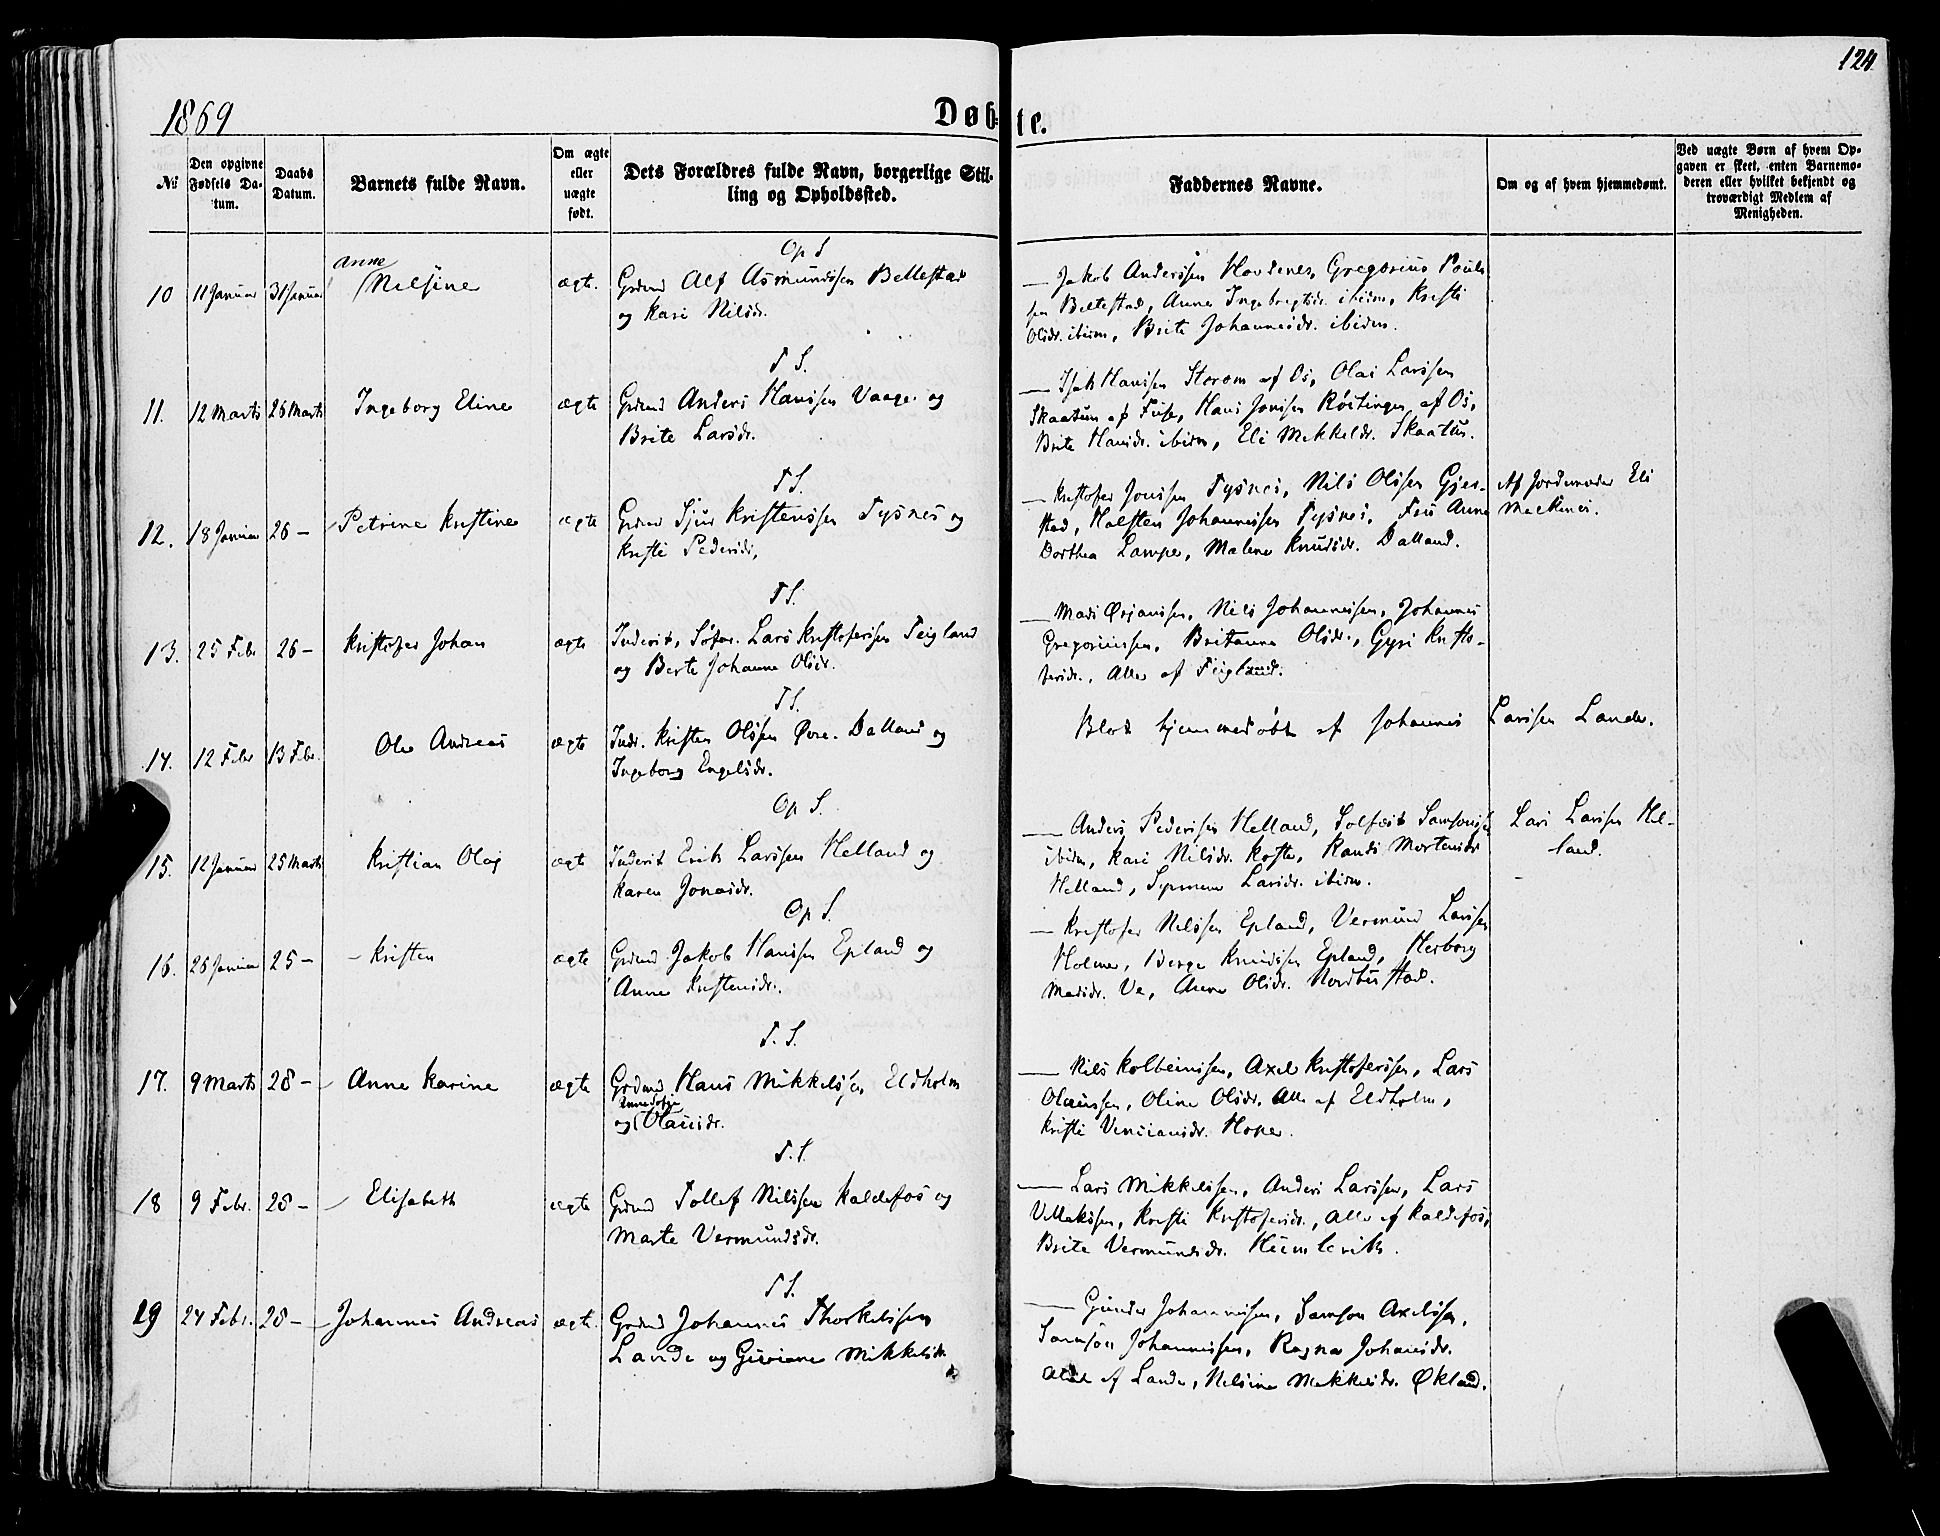 124
1869
Døb-
te.
№
Den opgivne Fødsels Da-tum.
Daabs Datum.
Barnets fulde Navn.
Om ægte eller uægte født.
Dets Forældres fulde Navn, borgerlige Stil-
ling og Opholdssted.
Faddernes Navne.
Om og af hvem hjemmedøbt.
Ved uægte Børn af hvem Op-
gaven er skeet, enten Barnemo-
deren eller hvilket bekjendt og
troværdigt Medlem af
Menigheden.
Op S
10 11 Januar 31 Januar Anne Nilsine ægt. Grdmd Alf Asmundssen Beltestad
og Kari Nilsdr.
— Jakob Anderssen Hovdenes, Gregorius Pouls-
sen Beltestad, Anna Ingebregtsdr. ibidm, Kristi
Olsdr. ibidm, Brite Johannesdr. ibidm.
T S.
11. 12 Marts 26 Marts Ingeborg Eline ægte Grdmd Anders Hanssen Vaage og
Brite Larsdr.
— Isak Hanssen Storom af Os, Olai Larssen
Skaatun af Fuse, Hans Jonssen Røttingen af Os,
Brite Hansdr. ibidm, Eli Mikkelsdr. Skaatun.
T S.
12. 18 Januar 26 — Petrine Kristine ægte Grdmd Sjur Kristenssen Tysnes og
Kristi Pedersdr,
— Kristofer Jonssen Tysnes, Nils Olssen Gjer-
stad, Halsten Johannessen Tysnes, Fru Anne
Dorthea Lampe, Malene Knudsdr. Dalland.
Af Jordemoder Eli
T S.
13. 25 Febr 26 — Kristofer Johan ægte Inderst, Søfar. Lars Kristoferssen Teigland
og Berte Johanne Olsdr.
— Mads Ørjanssen, Nils Johannessen, Johannes
Gregoriussen, Britanna Olsdr., Gyri Kristo-
fersdr., Alle af Teigland.
T S.
14. 12 Febr 13 Febr. Ole Andreas ægte Indr. Kristen Olssen Øvre-Dalland og
Ingeborg Engelsdr.
Blot hjemmedøbt af Johannes Larssen Lande.
Op S.
15. 12 Januar 25 Marts Kristian Olaj ægt Inderst Erik Larssen Helland og
Karen Jonasdr.
— Anders Pederssen Helland, Solfæst Samsonssen
ibidm, Kari Nilsdr. Kofte, Randi Mortensdr
Helland, Synneve Larsdr. ibidm.
Lars Larssen Hel-
land.
Op S.
16. 26 Januar 25 — Kristen ægte Grdmd Jakob Hanssen Epland og
Anne Kristensdr.
— Kristofer Nilssen Epland, Vermund Larssen
Holme, Berge Knudssen Epland, Herborg
Madsdr. Ve, Anna Olsdr. Nordbustad.
T. S.
17. 9 Marts 28 — Anne Karine ægte Grdmd Hans Mikkelssen Eldholm
og Olausdr.
— Nils Kolbeinssen, Axel Kristoferssen, Lars
Olaussen, Oline Olsdr. Alle af Eldholm,
Kristi Hope.
T. S.
18 9 Febr. 28 — Elisabeth ægte Grdmd Tollef Nilssen Kaldefos og
Marte Vermundsdr.
— Lars Mikkelssen, Anders Larssen, Lars
Villakssen, Kristi Kristofersdr., Alle af Kaldefos,
Brite Vermundsdr. Heimlevik.
T S.
19 24 Febr. 28 — Johannes Andreas ægt. Grdmd Johannes Thorkelssen
Lande og Guriane Mikkelsdr
— Gunder Johannessen, Samson Axelssen,
Samson Johannessen, Ragna Johansdr.
Alle af Lande, Nilsine Mikkelsdr. Økland.